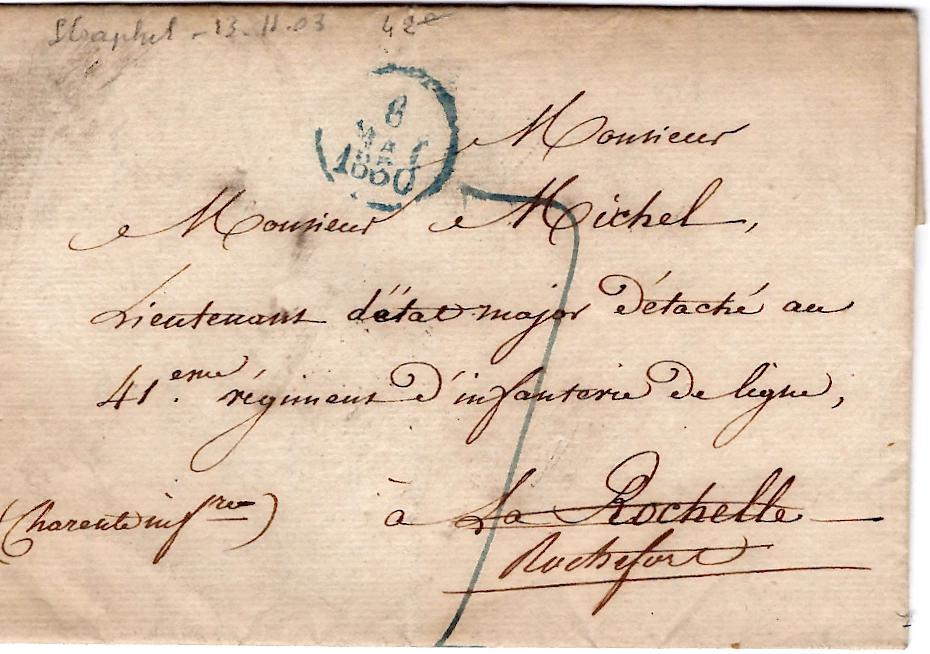 13.11.03 42e
8
MAI
1830
Monsieur
Monsieur Michel,
Lieutenant d'état major détaché au
41.eme régiment d'infanterie de ligne,
à La Rochelle
(Charente inf.re)
Rochefort
7